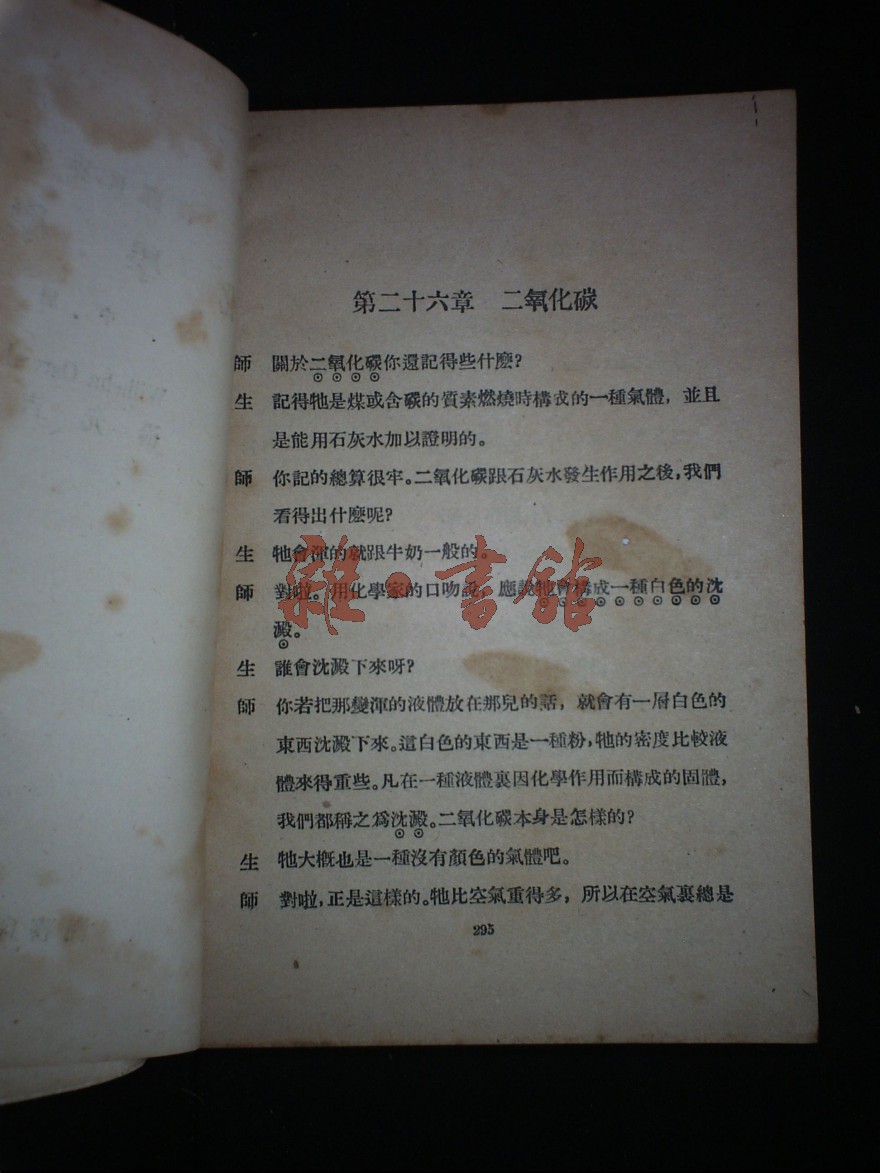 第二十六章 二氧化碳
師 關於二氧化碳你還記得些什麼?
生 記得牠是煤或含碳的質素燃燒時構成的一種氣體，並且
是能用石灰水加以證明的。
師 你記的總算很牢。二氧化碳跟石灰水發生作用之後，我們
看得出什麼呢?
生 牠會渾的就跟牛奶一般的。
師 對啦。用化學家的口吻說，應說牠會構成一種白色的沈
澱。
生 誰會沈澱下來呀?
師 你若把那變渾的液體放在那兒的話，就會有一層白色的
東西沈澱下來。這白色的東西是一種粉，牠的密度比較液
體來得重些。凡在一種液體裏因化學作用而構成的固體，
我們都稱之爲沈澱。二氧化碳本身是怎樣的?
生 牠大槪也是一種沒有顏色的氣體吧。
師 對啦，正是這樣的。牠比空氣重得多，所以在空氣裏總是
295
雜·書館